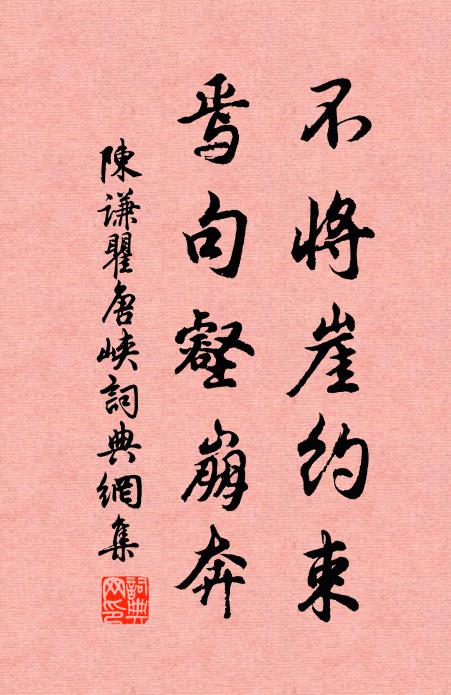 不將崖約束
焉句壑崩奔
陳謙瞿唐峽詞典網集
詞典网印